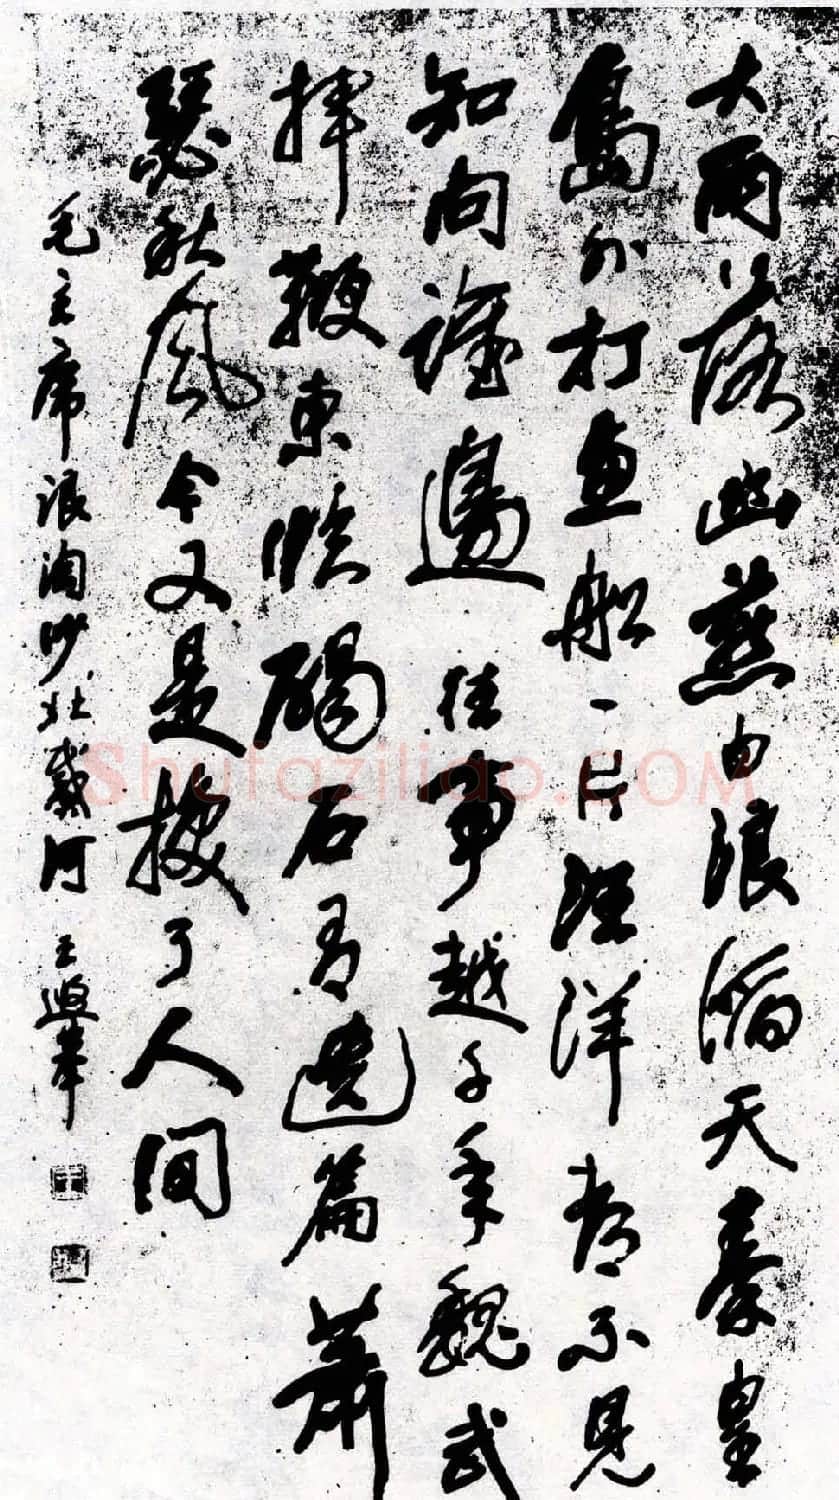 大雨落幽燕白浪滔天秦皇
島外打魚船一片汪洋都不見
知向誰邊往事越千年魏武
揮鞭東臨碣石有遺篇蕭
瑟秋風今又是換了人間
毛主席浪淘沙北戴河 王遐舉
Shufaziliao.COM